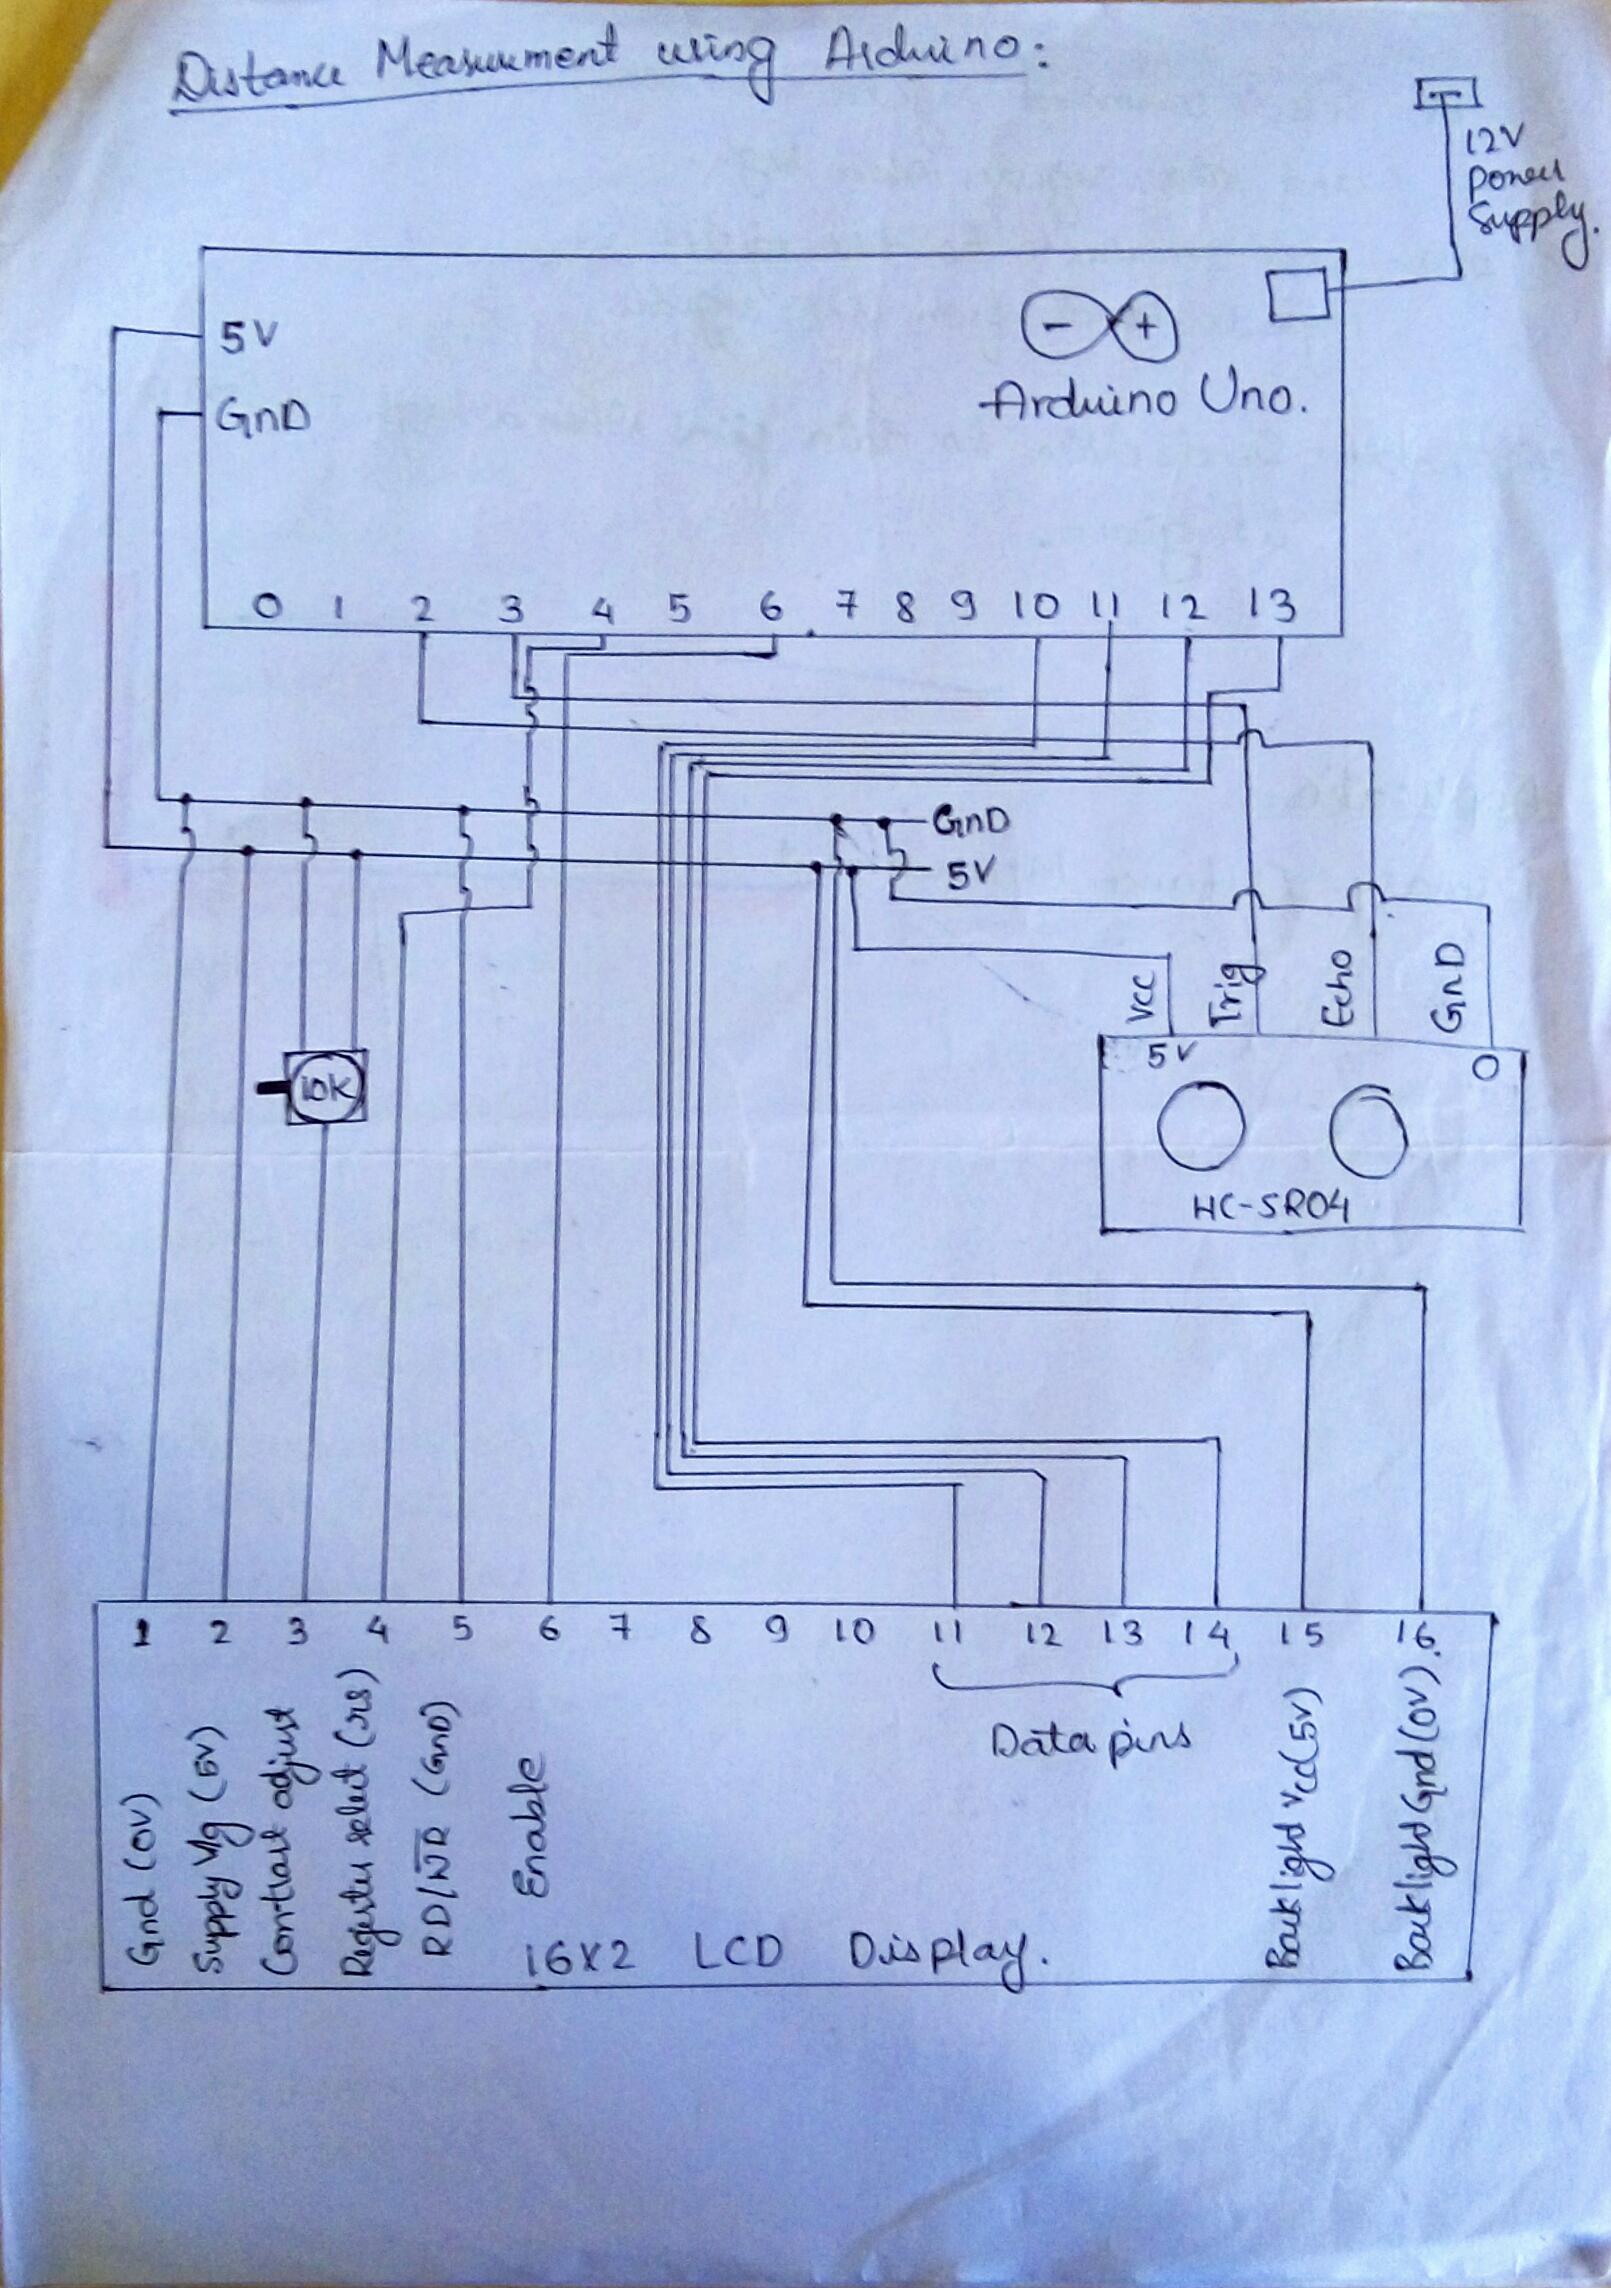 Distance Measurement using Arduino:
12V
Power
Supply.
5V
GND
- +
Arduino Uno.
0 1 2 3 4 5 6 7 8 9 10 11 12 13
GND
5V
Vcc Trig Echo GND
5V 0
10K
HC-SR04
1 2 3 4 5 6 7 8 9 10 11 12 13 14 15 16.
Data pins
Gnd (0V)
Supply Vlg (5V)
Contrast adjust
Register select (rs)
RD/W̅R̅ (GND)
Enable
Back light Vcc(5V)
Back light Gnd (0V).
16X2 LCD Display.